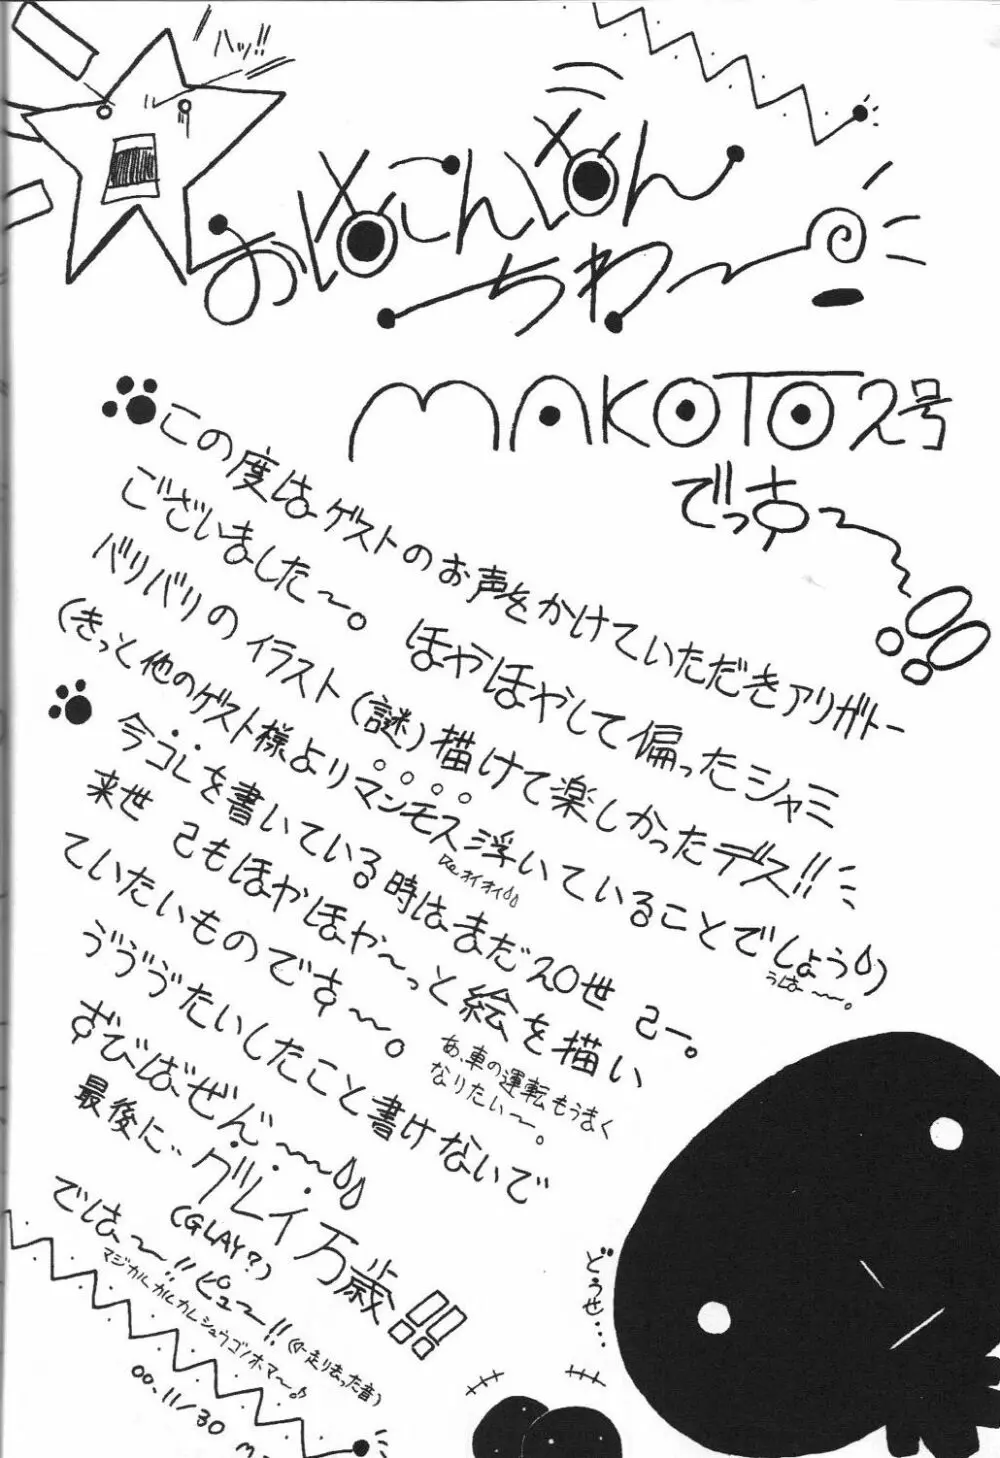 ハッ!!
おぬこんぬん
ちわー
MAKOTO2号
でっすー!!
この度はゲストのお声をかけていただきアリガトー
ございました〜。ほやほやして偏ったシャミ
バリバリのイラスト(謎)描けて楽しかったデス!!
(きっと他のゲスト様よりマンモス浮いていることでしょう)
オイオイ
うはー〜。
今コレを書いている時はまだ20世己ー。
来世己もほやほや〜っと絵を描い
ていたいものです〜。
あ、車の運転もうまく
なりたい〜。
ゔゔゔたいしたこと書けないで
ずびばぜん〜
最後に…グレイ万歳!!
(GLAY?)
では〜!!ピュ〜!!(←走り去った音)
マジカルカルカルシュウゴノホマ〜♪
00.11/30
どうせ…